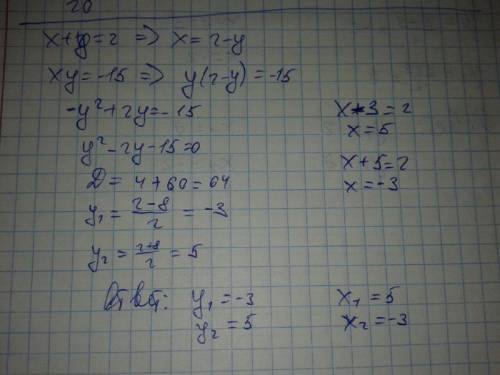 20
x+y=2 => x=2-y
xy=-15 => y(2-y)=-15
-y²+2y=-15
y²-2y-15=0
D= 4+60=64
y₁= (2-8)/2 = -3
y₂= (2+8)/2 = 5
x-3=2
x=5
x+5=2
x=-3
Ответ: y₁=-3 x₁=5
y₂=5 x₂=-3